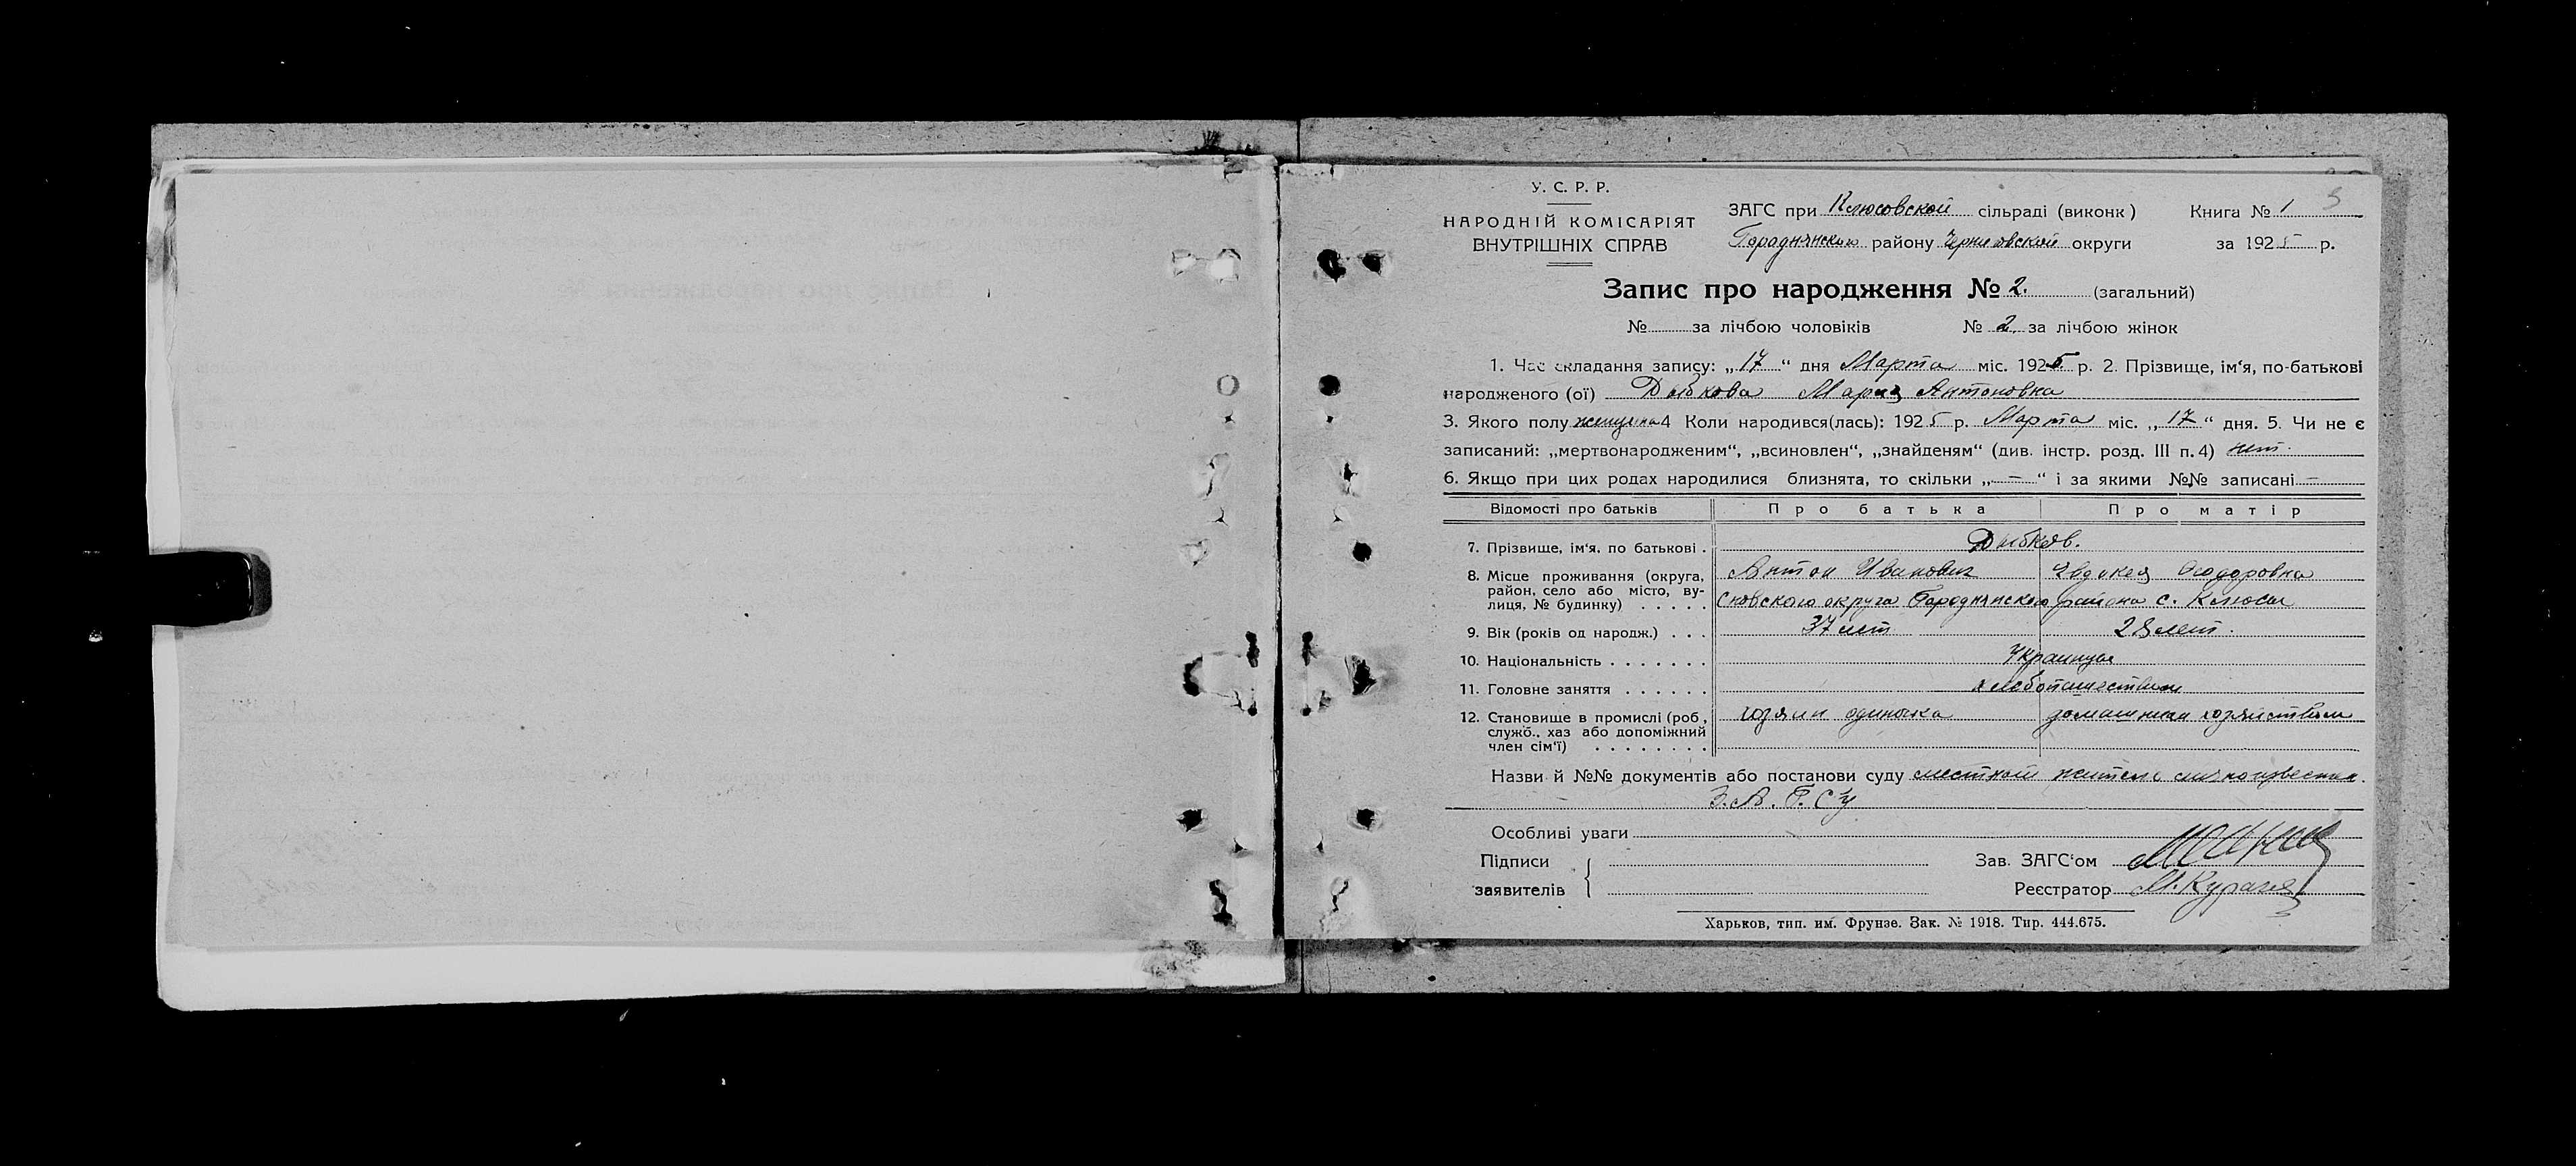 У. С. Р. Р.
НАРОДНІЙ КОМІСАРІЯТ
ВНУТРІШНІХ СПРАВ
ЗАГС при Клюсовской сільраді (виконк) Книга № 1 3
Городнянского району Черниговской округи за 1925 р.
Запис про народження № 2. (загальний)
№ за лічбою чоловіків № 2 за лічбою жінок
1. Час складання запису: „17“ дня Марта міс. 1925 р. 2. Прізвище, ім‘я, по-батькові
народженого (ої) Дыбкова Мария Антоновна
3. Якого полу женщина 4 Коли народився(лась): 1925 р. Марта міс. „17“ дня. 5. Чи не є
записаний: „мертвонародженим“, „всиновлен“, „знайденям“ (див. інстр. розд. III п. 4) нет.
6. Якщо при цих родах народилися близнята, то скільки „—“ і за якими №№ записані —
Відомості про батьків Про батька Про матір
7. Прізвище, ім‘я, по батькові . Дыбков.
8. Місце проживання (округа, Антон Иванович Евдокея Феодоровна
район, село або місто, ву-
лиця, № будинку) . . . . . Сновского округа Городнянского района с. Клюсы
9. Вік (років од народж.) . . . 37 лет 28 лет.
10. Національність . . . . . . . Украинцы
11. Головне заняття . . . . . . хлебопашеством
12. Становище в промислі (роб., хозяин одиночка домашним хозяйством
служб., хаз або допоміжний
член сім‘ї) . . . . . . . .
Назви й №№ документів або постанови суду местный житель лично известен
З.А.Г.Су
Особливі уваги
Підписи Зав. ЗАГС‘ом
заявителів Реєстратор М. Кураня
Харьков, тип. им. Фрунзе. Зак. № 1918. Тир. 444.675.